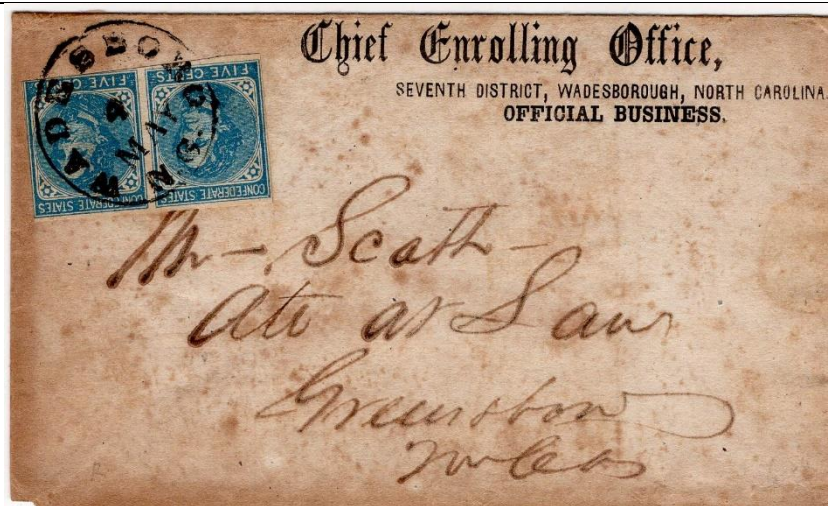 Chief Enrolling Office,
SEVENTH DISTRICT, WADESBOROUGH, NORTH CAROLINA.
OFFICIAL BUSINESS.
FIVE CENTS FIVE CENTS
CONFEDERATE STATES CONFEDERATE STATES
WADESBORO
MAY
4
N.C.
Mr - Scott -
Att at Law
Greensboro
No Ca